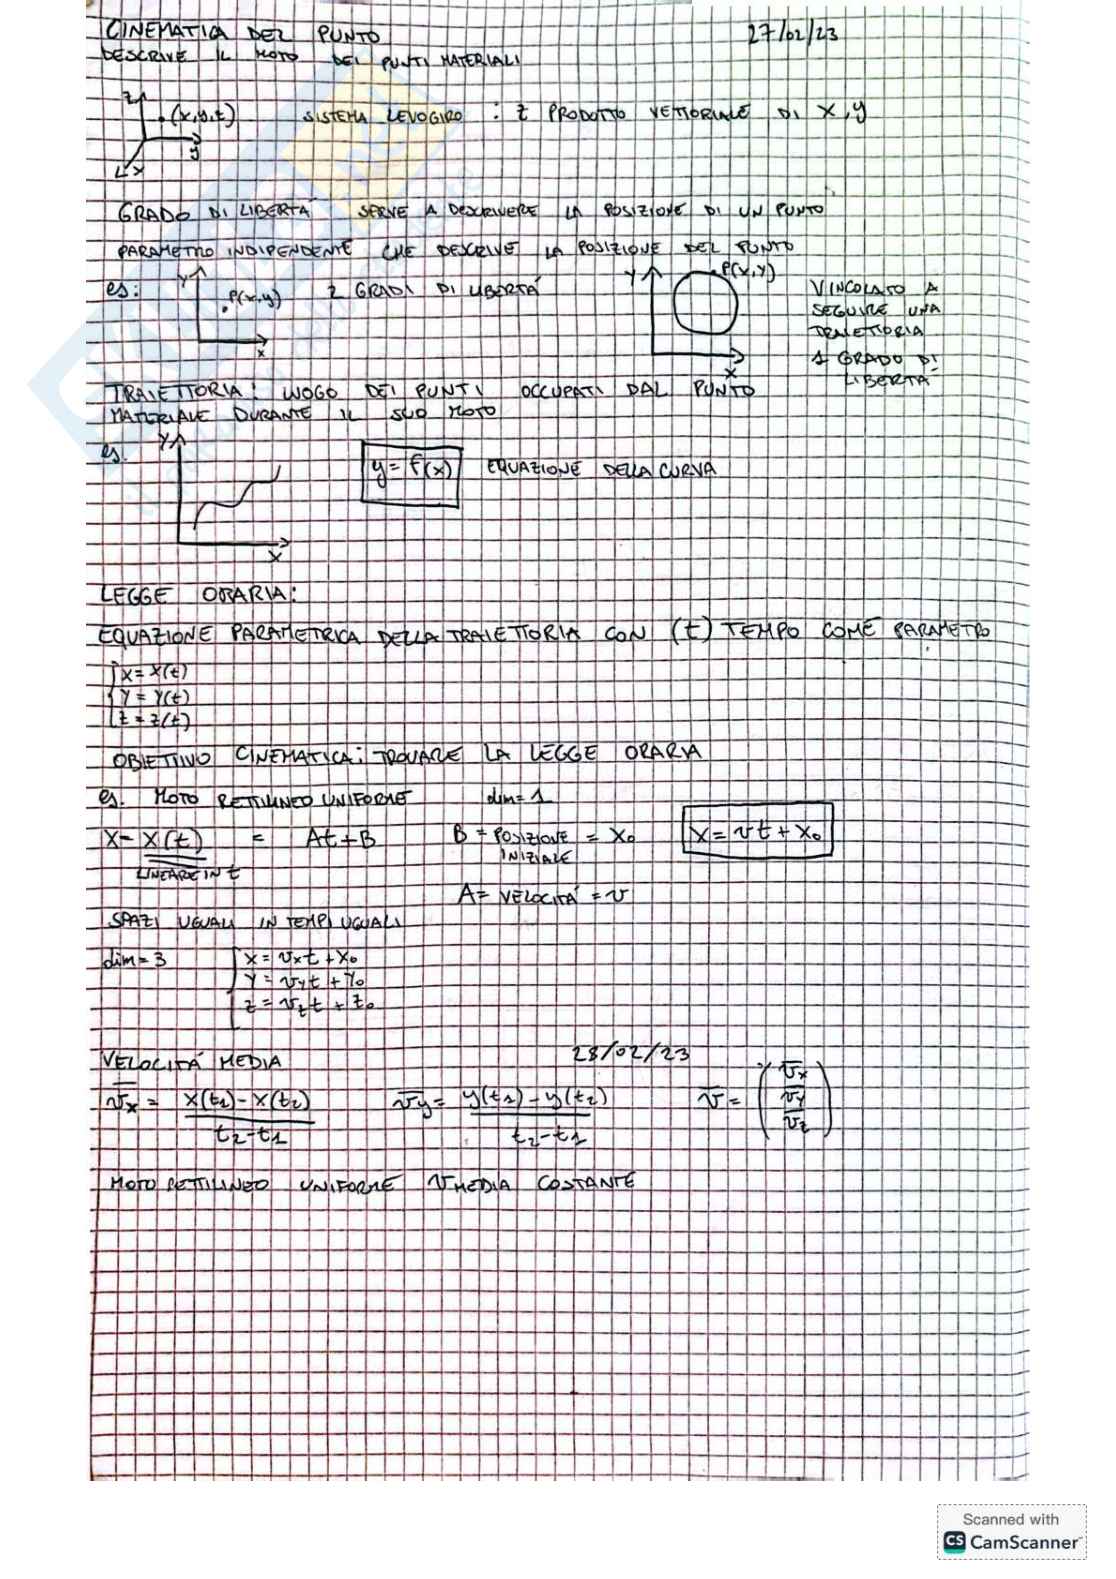 CINEMATICA DEL PUNTO 27/02/23
DESCRIVE IL MOTO DEI PUNTI MATERIALI
z
(x,y,z) SISTEMA LEVOGIRO : z PRODOTTO VETTORIALE DI x,y
y
x
GRADO DI LIBERTÀ SERVE A DESCRIVERE LA POSIZIONE DI UN PUNTO
PARAMETRO INDIPENDENTE CHE DESCRIVE LA POSIZIONE DEL PUNTO
es: Y P(x,y) 2 GRADI DI LIBERTÀ Y P(x,y) VINCOLATO A
SEGUIRE UNA
TRAIETTORIA
x x 1 GRADO DI
LIBERTÀ
TRAIETTORIA: LUOGO DEI PUNTI OCCUPATI DAL PUNTO
MATERIALE DURANTE IL SUO MOTO
es. Y y = f(x) EQUAZIONE DELLA CURVA
x
LEGGE ORARIA:
EQUAZIONE PARAMETRICA DELLA TRAIETTORIA CON (t) TEMPO COME PARAMETRO
x = x(t)
Y = Y(t)
z = z(t)
OBIETTIVO CINEMATICA: TROVARE LA LEGGE ORARIA
es. MOTO RETTILINEO UNIFORME dim=1
X = X(t) = At+B B = POSIZIONE INIZIALE = X₀ X = vt + X₀
LINEARE IN t
A = VELOCITÀ = v
SPAZI UGUALI IN TEMPI UGUALI
dim=3 x = vₓt + x₀
Y = v_y t + Y₀
z = v_z t + z₀
VELOCITÀ MEDIA 28/02/23
v̄ₓ = x(t₁) - x(t₂) / t₂-t₁ v̄y = y(t₁) - y(t₂) / t₂-t₁ v̄ = (v̄x v̄y v̄z)
MOTO RETTILINEO UNIFORME v MEDIA COSTANTE
Scanned with
CS CamScanner